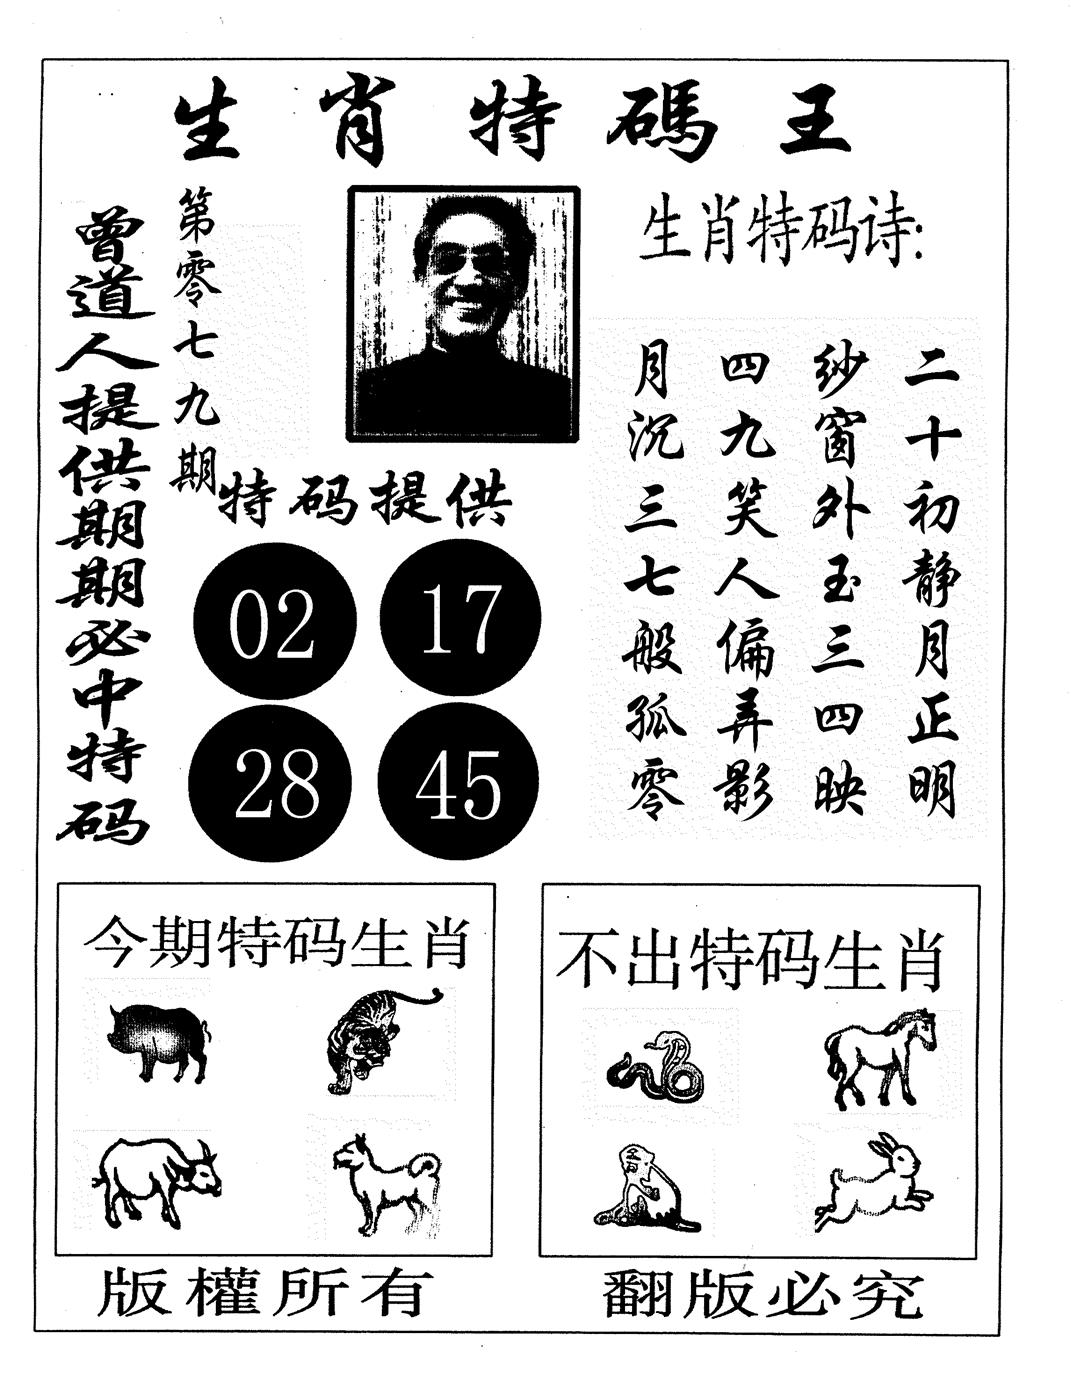 生肖特碼王
曾道人提供期期必中特码
第零七九期
生肖特码诗:
二十初静月正明
纱窗外玉三四映
四九笑人偏弄影
月沉三七般孤零
特码提供
02
17
28
45
今期特码生肖
不出特码生肖
版權所有
翻版必究